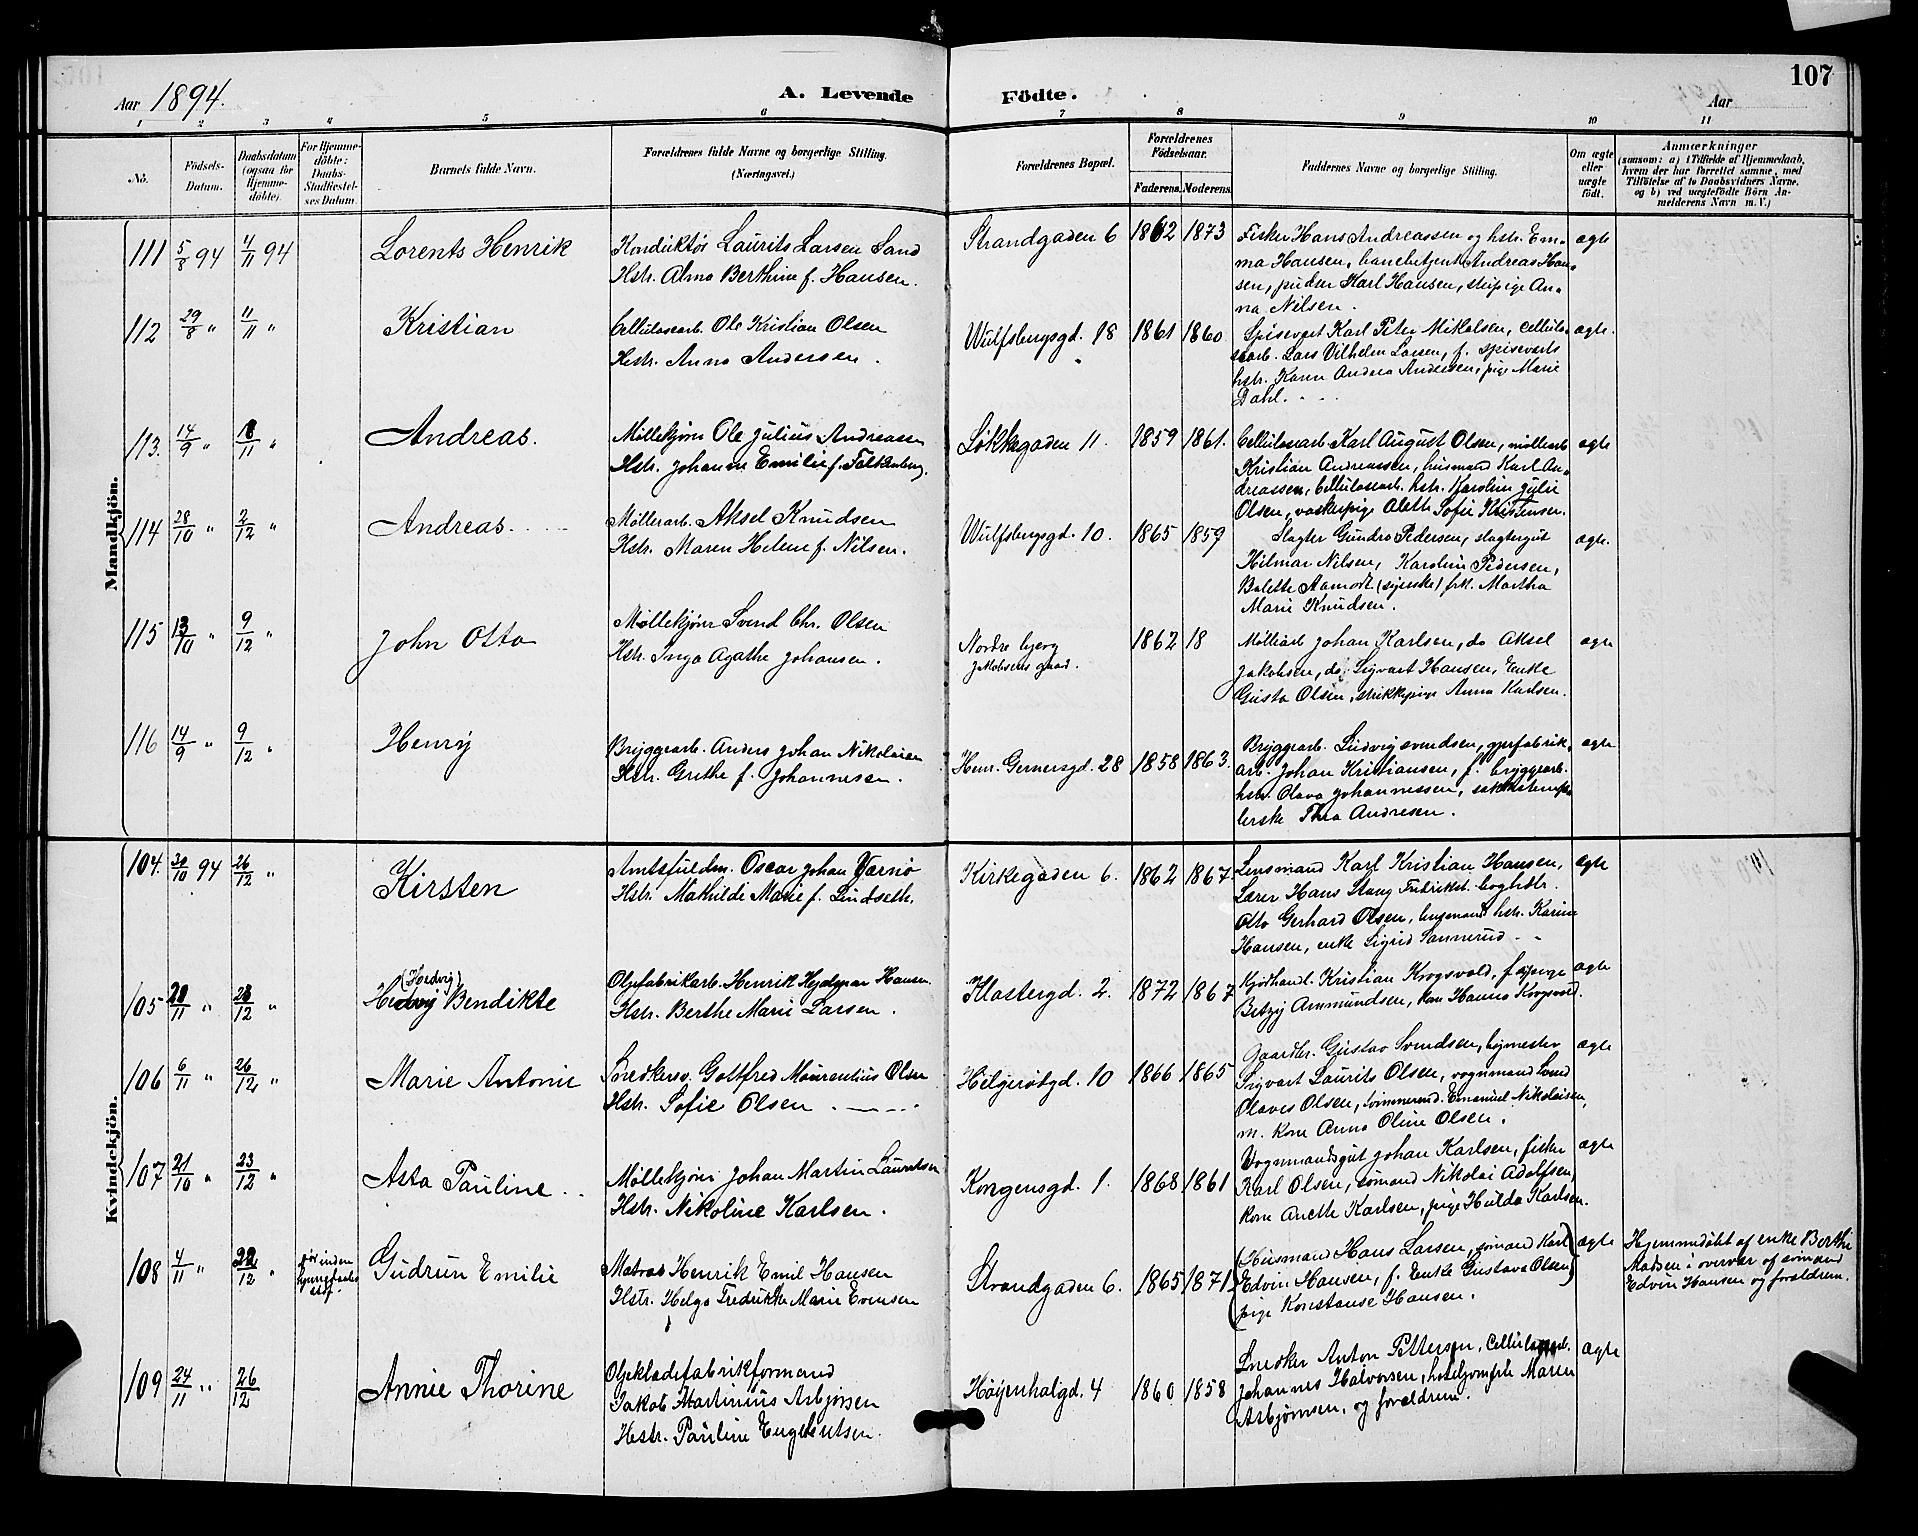 107
Aar 1894.
A. Levende Födte.
Aar
1 2 3 4 5 6 7 8 9 10 11
No.
Födsels-Datum.
Daabsdatum (ogsaa for Hjemme-döbte).
For Hjemme-döbte: Daabs-Stadfæstel-ses Datum.
Barnets fulde Navn.
Forældrenes fulde Navne og borgerlige Stilling. (Næringsvei.)
Forældrenes Bopæl.
Forældrenes Födselsaar.
Faderens. Moderens.
Faddernes Navne og borgerlige Stilling.
Om ægte eller uægte født.
Anmærkninger
(saasom: a) i Tilfælde af Hjemmedaab, hvem der har forrettet samme, med Tilföielse af to Daabsvidners Navne, og b) ved uægtefödte Börn An-melderens Navn m. V.)
Mandkjön.
111 5/8 94 4/11 94 Lorents Henrik
Konduktør Laurits Larsen Sand
Hstr. Alma Berthine f. Hansen.
Strandgaden 6 1862 1873
Fisker Hans Andreassen og hstr. Em-
ma Hansen, banebetjent Andreas Han-
sen, Karl Hansen, An-
na Nilsen.
ægte
112 29/8 " 11/11 " Kristian
Cellulosearb. Ole Kristian Olsen
Hstr. Anna Andersen.
Wulfsbergsgd. 18 1861 1860
Spisevært Karl Peter Mikalsen, cellulo-
searb. Lars Vilhelm Larsen, f. spiseværts
hstr. Karen Andrea Andersen, pige Marie
Dahl.
ægte.
113. 14/9 " 18/11 " Andreas.
Møllekjører Ole Julius Andreassen
Hstr. Johanne Emilie f. Falkenberg.
Løkkegaden 11. 1859 1861.
Cellulosearb. Karl August Olsen, møllearb.
Kristian Andreassen, husmand Karl An-
dreassen, Cellulosearb. hstr. Karoline Julie
Olsen, vaskepige Aleth Sofie Kristensen.
ægte
114 28/10 " 2/12 " Andreas.
Møllerarb. Aksel Knudsen
Hstr. Maren Helene f. Nilsen.
Wulfsbergsgd. 10. 1865 1859
Slagter Gundro Pedersen, slagtergut
Hilmar Nilsen, Karoline Pedersen,
Bolette Aamodt (syerske) frk. Martha
Marie Knudsen.
ægte.
115 13/10 " 9/12 " John Otto
Møllekjører Svend Chr. Olsen
Hstr. Inga Agathe Johansen.
Nordre bjerg
Jakobsens gaard.
1862 18
Møllearb. Johan Karlsen, do Aksel
Jakobsen, do. Sigvart Hansen, Enke
Gusta Olsen, strikkepige Anna Karlsen.
ægte
116 14/9 " 9/12 " Henry
Bryggearb. Anders Johan Nikolaisen
Hstr. Grethe f. Johannesen.
Henr. Gernersgd. 28 1858 1863.
Bryggearb. Ludvig Svendsen, gjærfabrik-
arb. Johan Kristiansen, f. bryggearb.
hstr. Olava Johannessen,
Thea Andresen.
ægte
Kvindekjön.
104. 30/10 94 26/12 " Kirsten
Amtsfuldm. Oscar Johan Værnø
Hstr. Mathilde Marie f. Lindseth.
Kirkegaden 6. 1862 1867
Lensmand Karl Kristian Hansen,
Lærer Hans Stang Fredrikst. boghdlr.
Otto Gerhard Olsen, lensmand hstr. Karine
Hansen, enke Sigrid Sannerud.
ægte
105 21/11 " 28/12 " (Hedvig) Hedvig Bendikte
Oljefabrikarb. Henrik Hjalmar Hansen
Hstr. Berthe Marie Larsen.
Klostergd. 2. 1872 1867
Kjødhandl. Kristian Krogsvold, f.
Betzy Ammundsen, Hanna Krogsvold.
ægte
106 6/11 " 26/12 " Marie Antonie
Snedkersv. Gottfred Maurentius Olsen
Hstr. Sofie Olsen.
Helgerödgd. 10 1866 1865
Gaardbr. Gustav Svendsen,
Sigvart Laurits Olsen, vognmand Svend
Olaves Olsen, tømmermd. Emanuel Nikolaisen,
m. kone Anna Oline Olsen.
ægte
107 21/10 " 23/12 " Asta Pauline
Møllekjører Johan Martin Lauritsen
Hstr. Nikoline Karlsen.
Kongensgd. 1. 1868 1861
Vognmandsgut Johan Karlsen, fisker
Karl Olsen, sømand Nikolai Adolfsen,
kone Anette Karlsen, pige Hulda Karlsen.
ægte
108 4/11 " 22/12 "
Gudrun Emilie
Matros Henrik Emil Hansen
Hstr. Helga Fredrikke Marie Evensen
Strandgaden 6. 1865 1871
(Husmand Hans Larsen, sømand Karl
Edvin Hansen, f. Enke Gustava Olsen)
pige Konstanse Hansen.
ægte
Hjemmedøbt af enke Berthe
Madsen i overvær af sømand
Edvin Hansen og forældrene.
109 24/11 " 26/12 Annie Thorine
Oljeklædefabrikformand
Jakob Martinius Asbjørnsen
Hstr. Pauline Engebretsen.
Høyenhalgd. 4 1860 1858
Snedker Anton Pettersen, Cellulosearb.
Johannes Halvorsen, hoteljomfru Maren
Asbjørnsen, og forældrene.
ægte